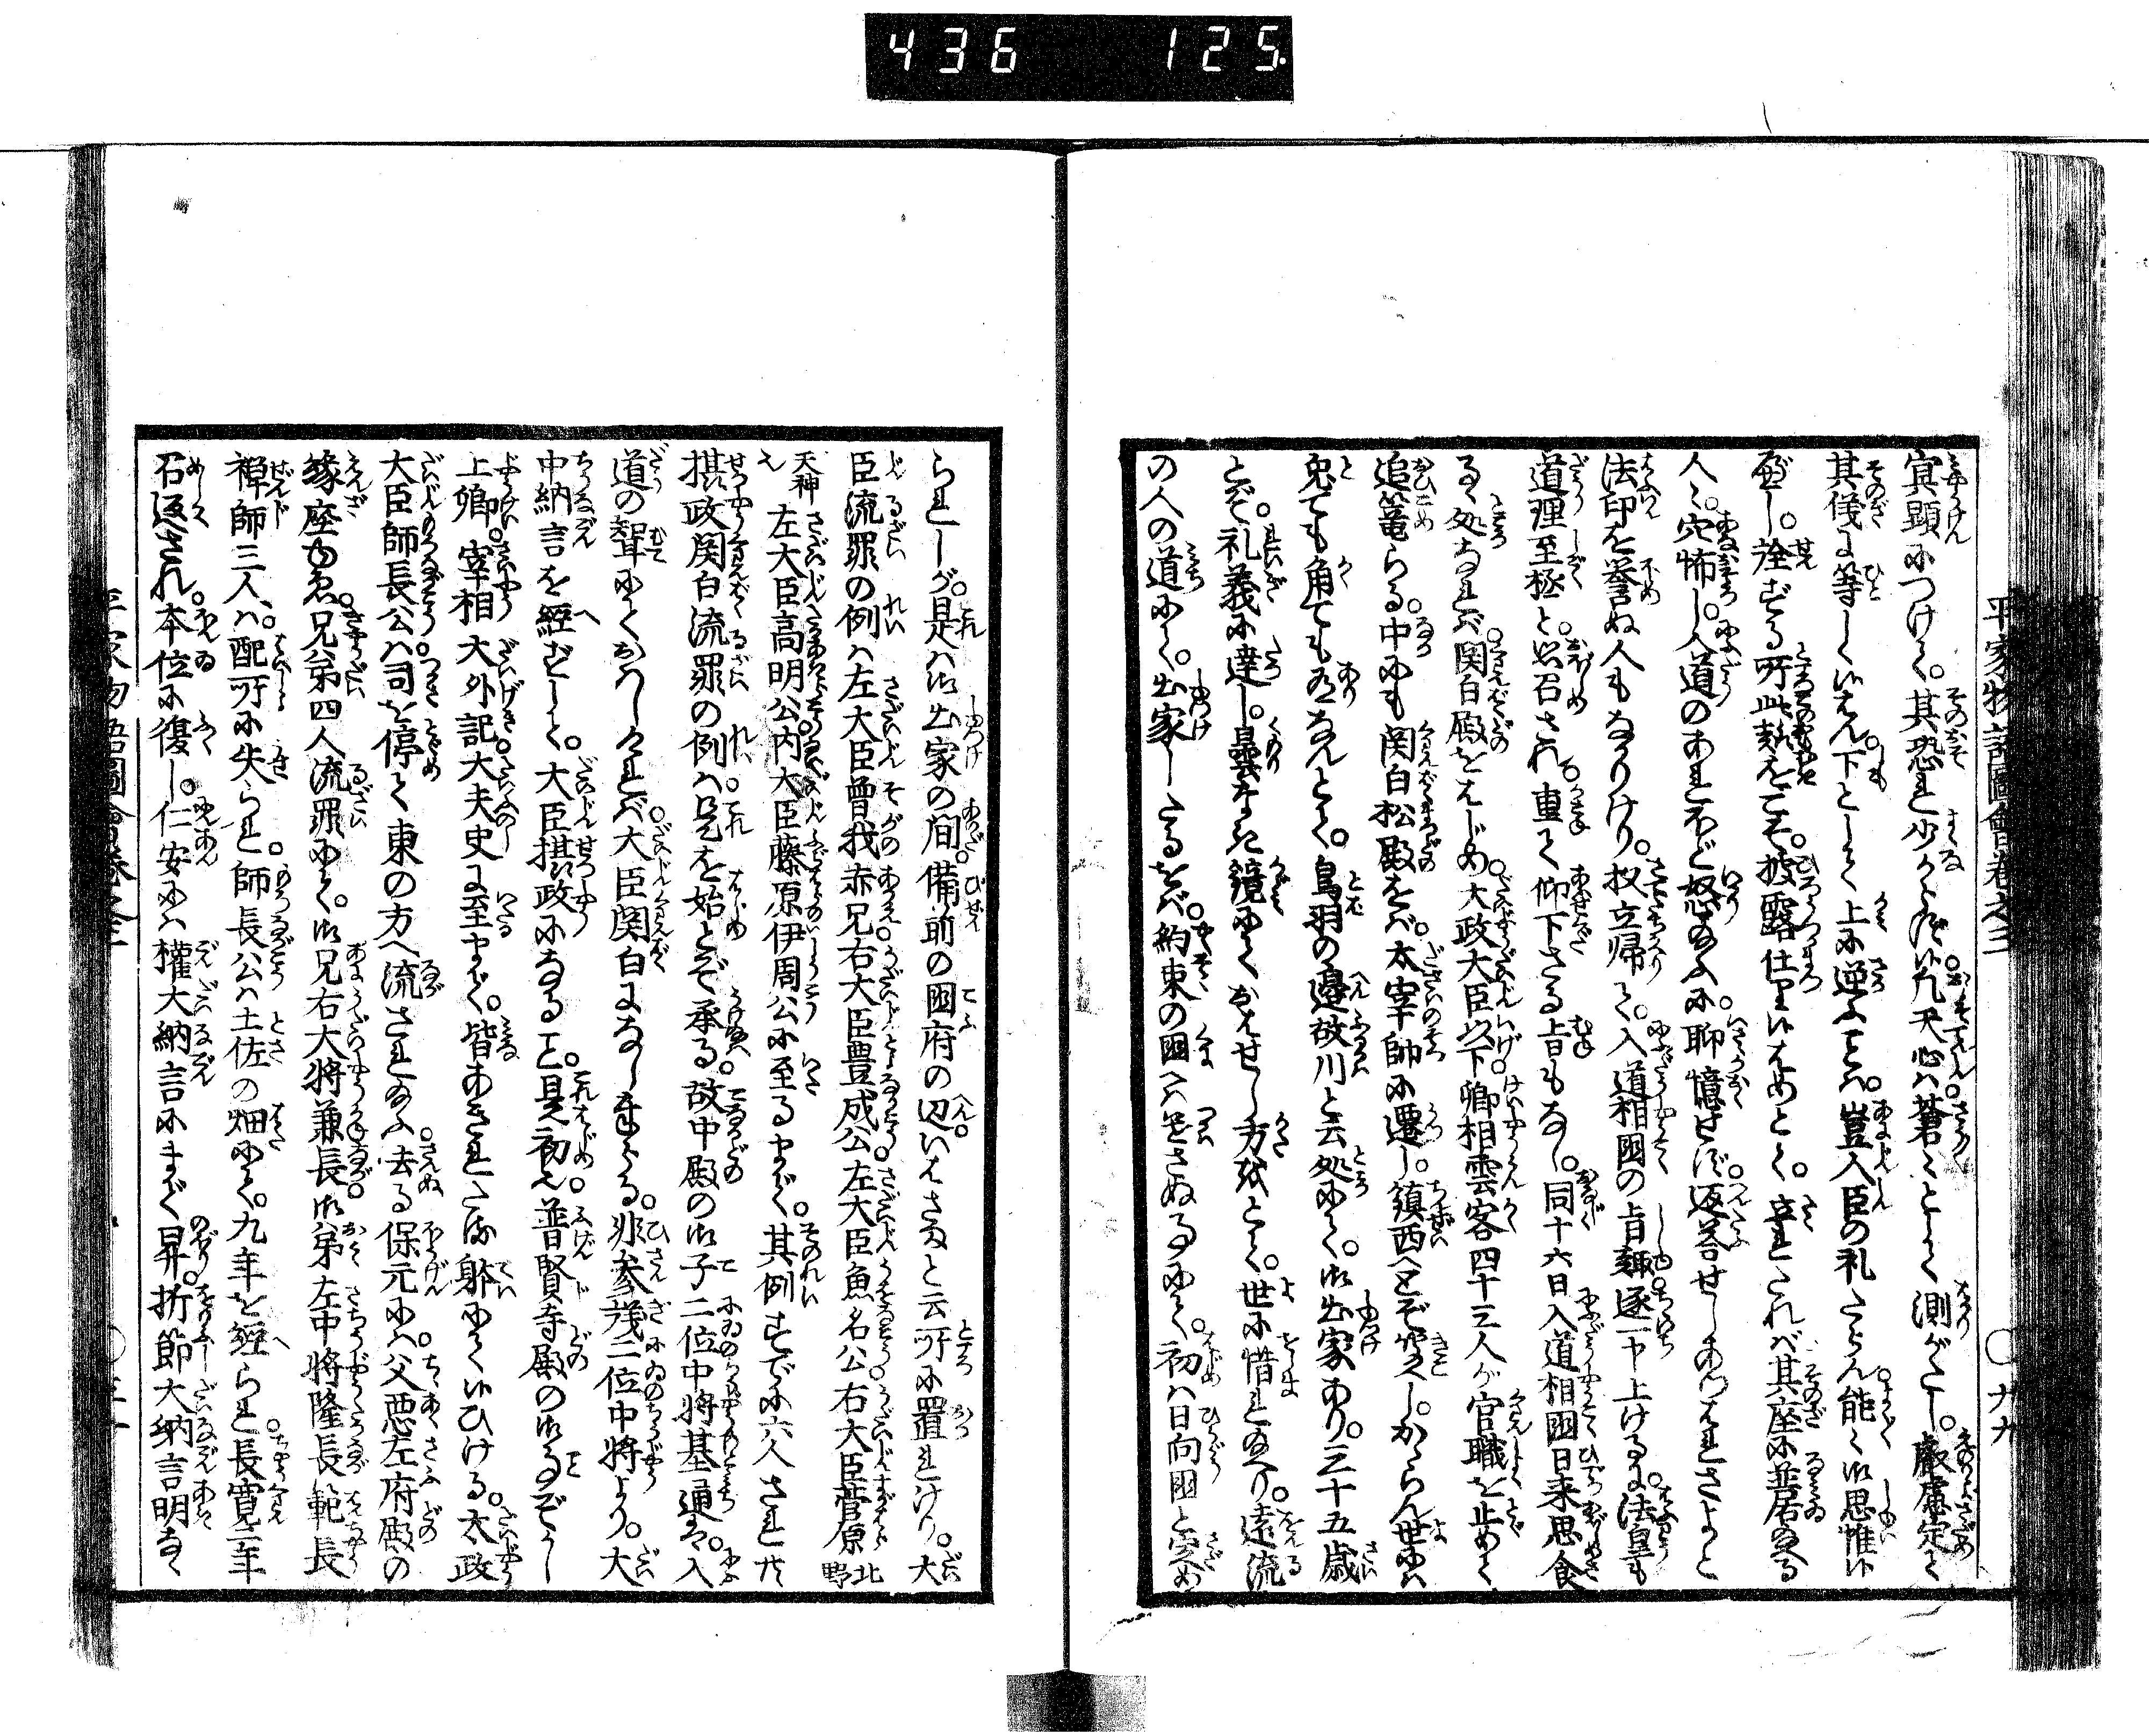 436 125.
平家物語圖會巻之三 ○廿九
冥顕につけて。其恐れ少からず候凡天心は蒼々として測がたし。叡慮定て
其儀に等しく候はん下として上に逆ふこと。豈人臣の礼たらん能々御思惟候
べし。詮ずる所此趣をこそ。披露仕り候はめとて。立れたれば其座に並居たる
人々。穴怖し。入道のあれほど怒たまふに聊憶せず。返答せしあつはれさよと
法印を誉ぬ人もなかりけり。扨立帰て。入道相國の旨趣逐一申上けるに法皇も
道理至極と。思召され。重て仰下さる旨もなし。同十六日入道相國日来思食
るゝ処なれば関白殿をはじめ大政大臣以下卿相雲客四十三人が官職を止めて
追篭らる。中にも関白松殿をば。太宰帥に遷し。鎮西へとぞ聞えし。かゝらん世には
兎ても角ても有なんとて。鳥羽の邊故川と云処にて。御出家あり。三十五歳
とぞ。礼義に達し。曇なき鏡にておはせし方故とて。世に惜れ玉へり。遠流
の人の道にて。出家したるをば。約束の國へは遣さぬ事にて。初は日向國と定め
られしが。是は御出家の間備前の國府の辺いばさまと云所に置れけり。大
臣流罪の例は左大臣曽我赤兄右大臣豊成公左大臣魚名公右大臣菅原 北野
天神也 左大臣高明公内大臣藤原伊周公に至るまで。其例すでに六人されども
摂政関白流罪の例は。是を始とぞ承る故中殿の御子二位中将基通公は。入
道の聟にておはしければ大臣関白になし奉る。非参議二位中将より。大
中納言を経ずして。大臣摂政になること。是初也普賢寺殿の御事ぞかし
上卿。宰相大外記大夫史に至まで。皆あきれたる躰にて候ひける。太政
大臣師長公は司を停て東の方へ流されたまふ去る保元には。父悪左府殿の
縁座ゆゑ。兄弟四人流罪にて。御兄右大将兼長。御弟左中将隆長範長
禅師三人は。配所に失られ。師長公は土佐の畑にて。九年を経られ長寛二年
召返され。本位に復し。仁安には権大納言にまで昇。折節大納言明なく
平家物語圖會巻之三